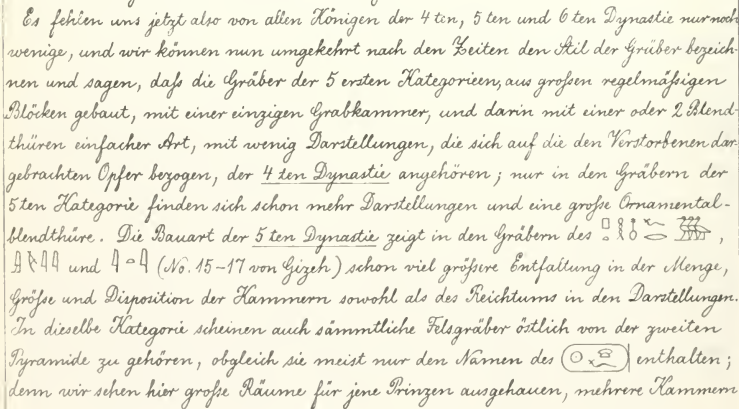 Es fehlen uns jetzt also von allen Königen der 4ten, 5ten und 6ten Dynastie nur noch
wenige, und wir können nun umgekehrt nach den Zeiten den Stil der Gräber bezeich-
nen und sagen, daſs die Gräber der 5 ersten Kategorieen, aus groſsen regelmäſsigen
Blöcken gebaut, mit einer einzigen Grabkammer, und darin mit einer oder 2 Blend-
thüren einfacher Art, mit wenig Darstellungen, die sich auf die den Verstorbenen dar-
gebrachten Opfer bezogen, der 4ten Dynastie angehören; nur in den Gräbern der
5ten Kategorie finden sich schon mehr Darstellungen und eine groſse Ornamental-
blendthüre. Die Bauart der 5ten Dynastie zeigt in den Gräbern des ,
und (No. 15-17 von Gizeh) schon viel gröſsere Entfaltung in der Menge,
Gröſse und Disposition der Kammern sowohl als des Reichtums in den Darstellungen.
In dieselbe Kategorie scheinen auch sämmtliche Felsgräber östlich von der zweiten
Pyramide zu gehören, obgleich sie meist nur den Namen des enthalten;
denn wir sehen hier groſse Räume für jene Prinzen ausgehauen, mehrere Kammern